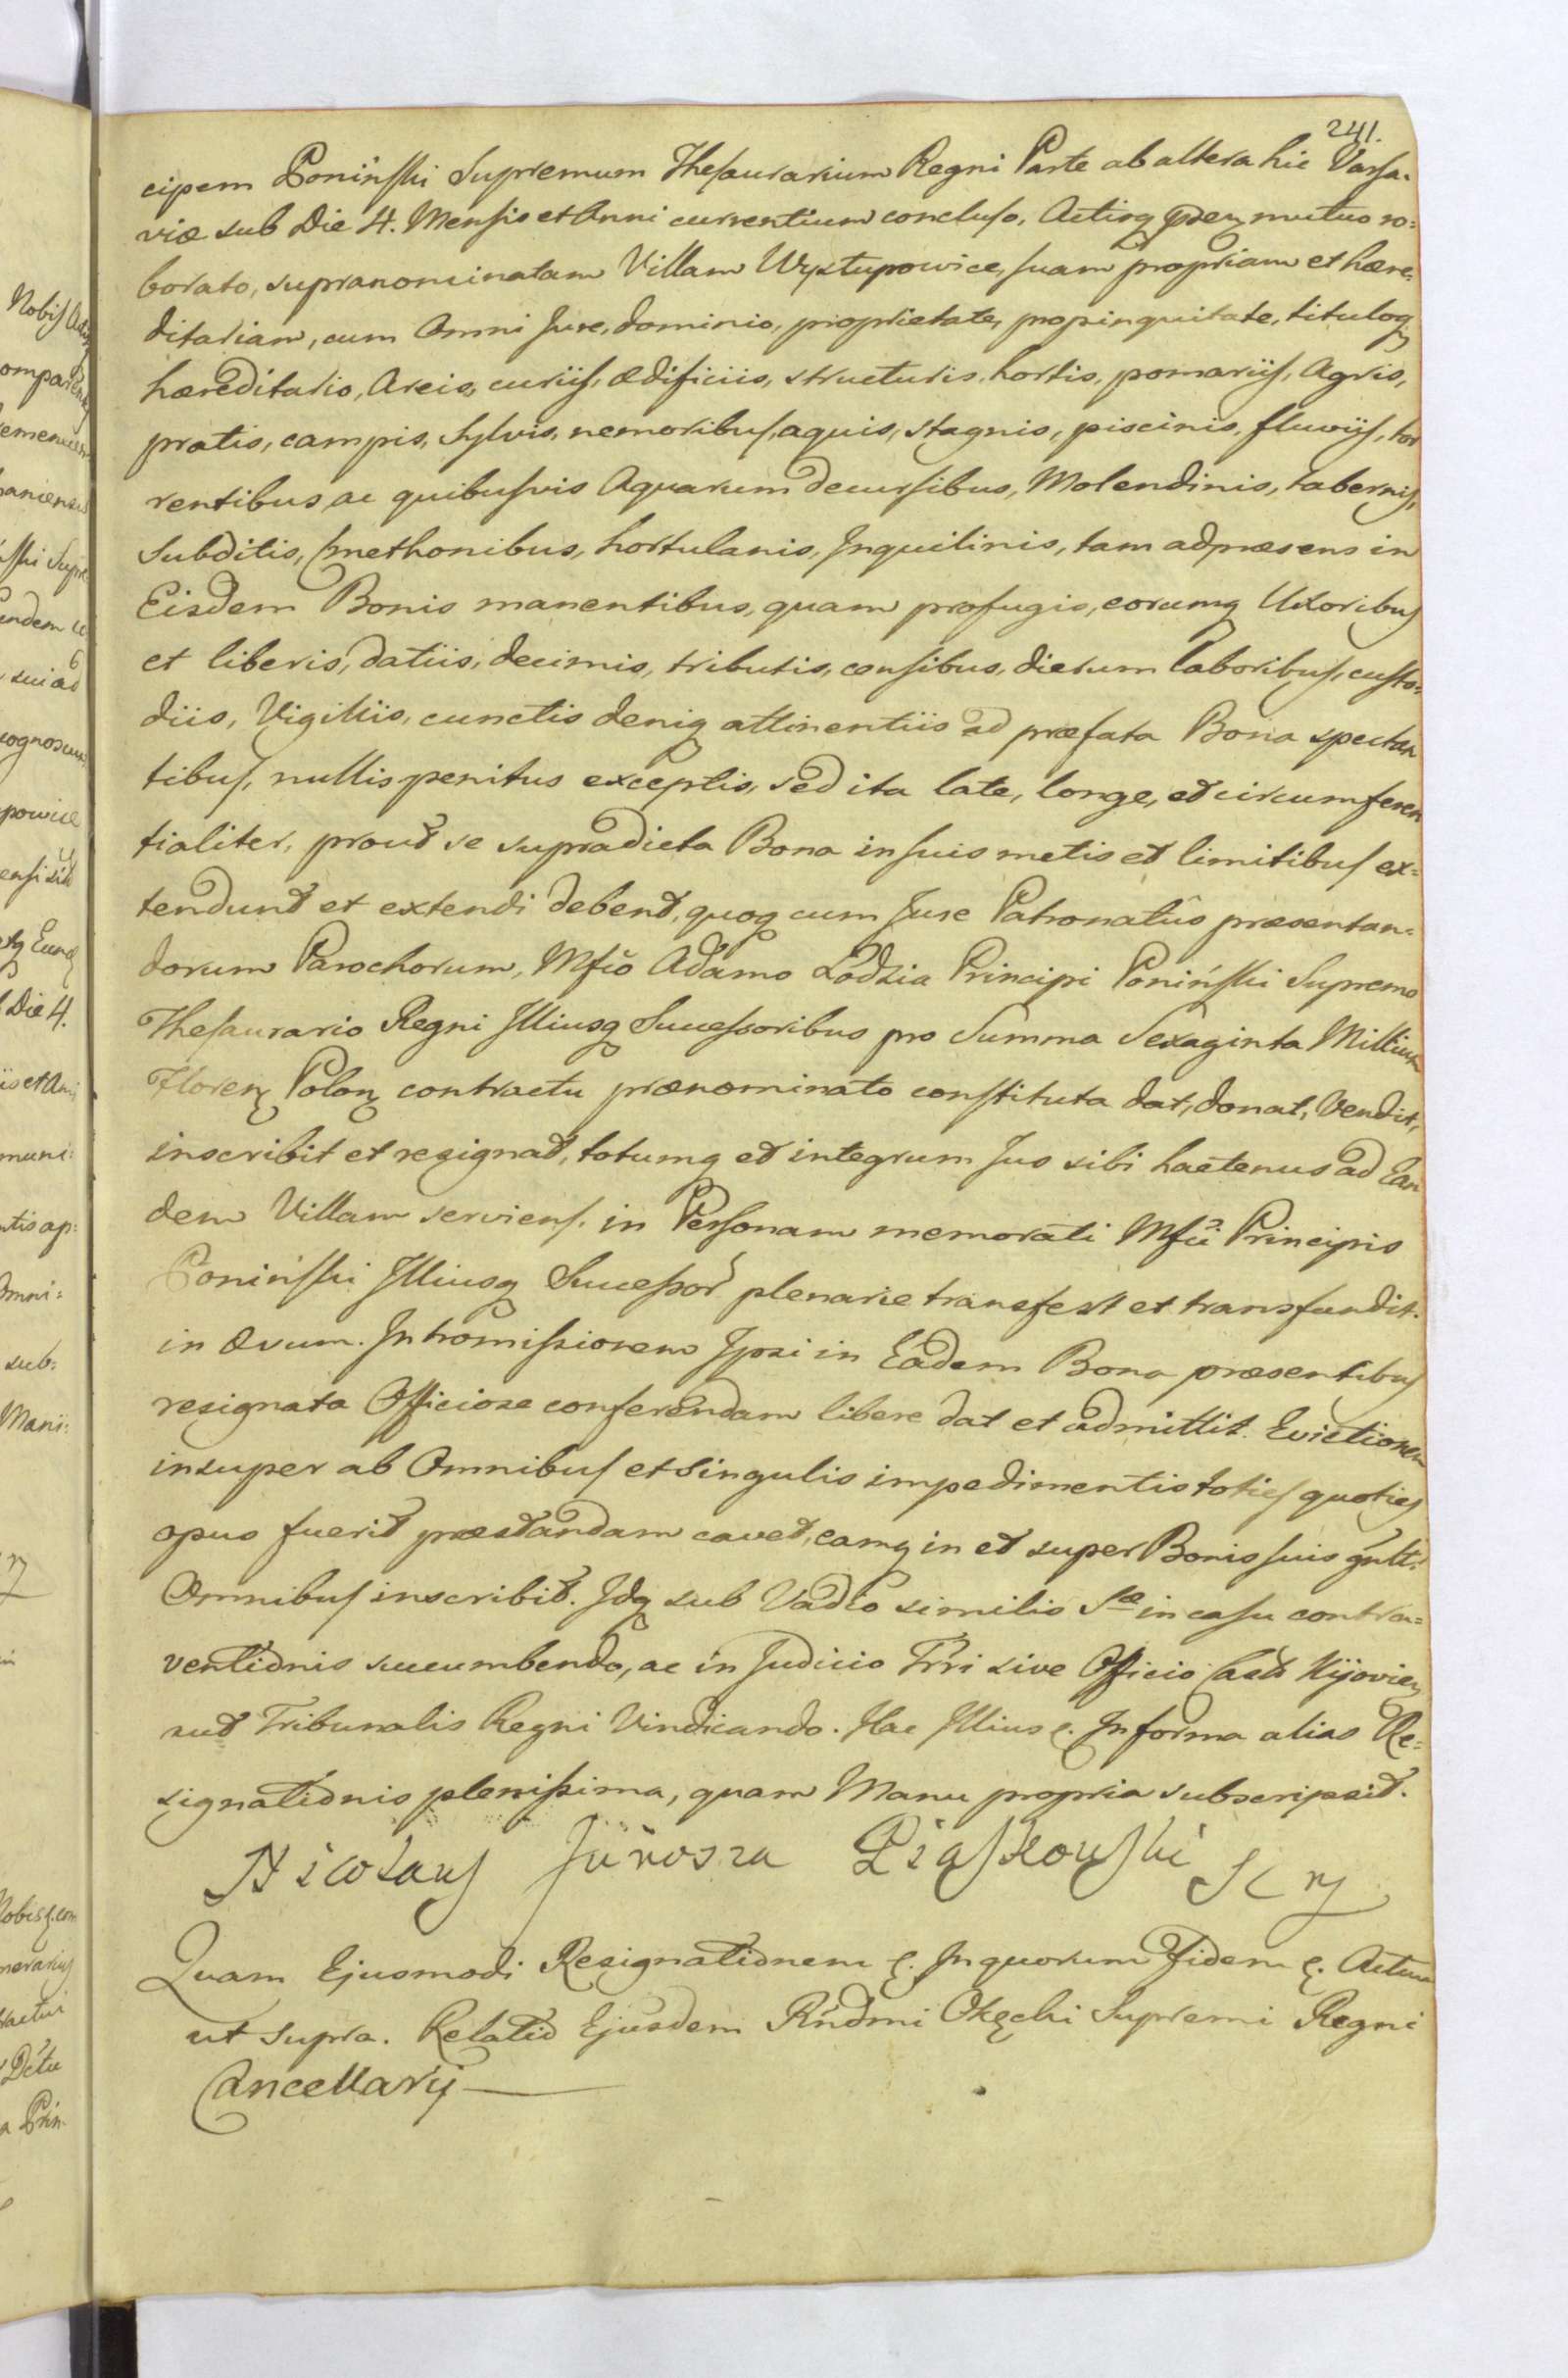 241.
cipem Poniński Supremum Thesaurarium Regni Parte ab altera hic Varsa-
viæ sub Die 4. Mensis et Anni currentium concluso, Actisq pñtz mutuo ro=
borato, supranominatam Villam Wystupowice, suam propriam et hære=
ditariam, cum Omni Jure, dominio, proprietate, propinquitate, tituloq
hæreditario, Areis, curiis, ædificiis, structuris, hortis, pomariis, Agris,
pratis, campis, Sylvis, nemoribus, aquis, stagnis, piscinis, fluviis, tor
rentibus ac quibusvis Aquarum decursibus, Molendinis, tabernis,
Subditis, Cmethonibus, hortulanis, Inquilinis, tam ad præsens in
Eisdem Bonis manentibus, quam profugis, eorumq Uxoribus
et liberis, datiis, decimis, tributis, censibus, dierum laboribus, custo=
diis, Vigiliis, cunctis deniq attinentiis ad præfata Bona spectan
tibus, nullis penitus exceptis, sed ita late, longe, et circumferen
tialiter, prout se supradicta Bona in suis metis et limitibus ex=
tendunt et extendi debent, quoq cum Jure Patronatûs præsentan-
dorum Parochorum, Mfco Adamo Łodzia Principi Poniński Supremo
Thesaurario Regni Illiusq Successoribus pro Summa Sexaginta Millium
Floren Polon contractu prænominato constituta dat, donat, Vendit,
inscribit et resignat, totumq et integrum Jus sibi hactenus ad Ean
dem Villam serviens. in Personam memorati Mfci Principis
Poniński Illiusq Successor plenarie transfert et transfundit.
in Ævum. Intromissionem Ipsi in Eadem Bona præsentibus
resignata Officiose conferendam libere dat et admittit. Evictionem
insuper ab Omnibus et Singulis impedimentis toties quoties
opus fuerit præstandam cavet, eamq in et super Bonis suis gnlt.
Omnibus inscribit. Idq sub Vadio similis Sæ in casu contra=
ventionis succumbendo, ac in Judicio Trri sive Officio Castr Kijovien
aut Tribunalis Regni Vindicando. Hac Illius e. In forma alias Re=
signationis plenissima, quam Manu propria subscripsit.
Nicolaus Junosza Piaskowski
Quam Ejusmodi Resignationem e. In quorum Fidem e. Actum
ut Supra. Relatio Ejusdem Rñdmi Okęcki Supremi Regni
Cancellarij